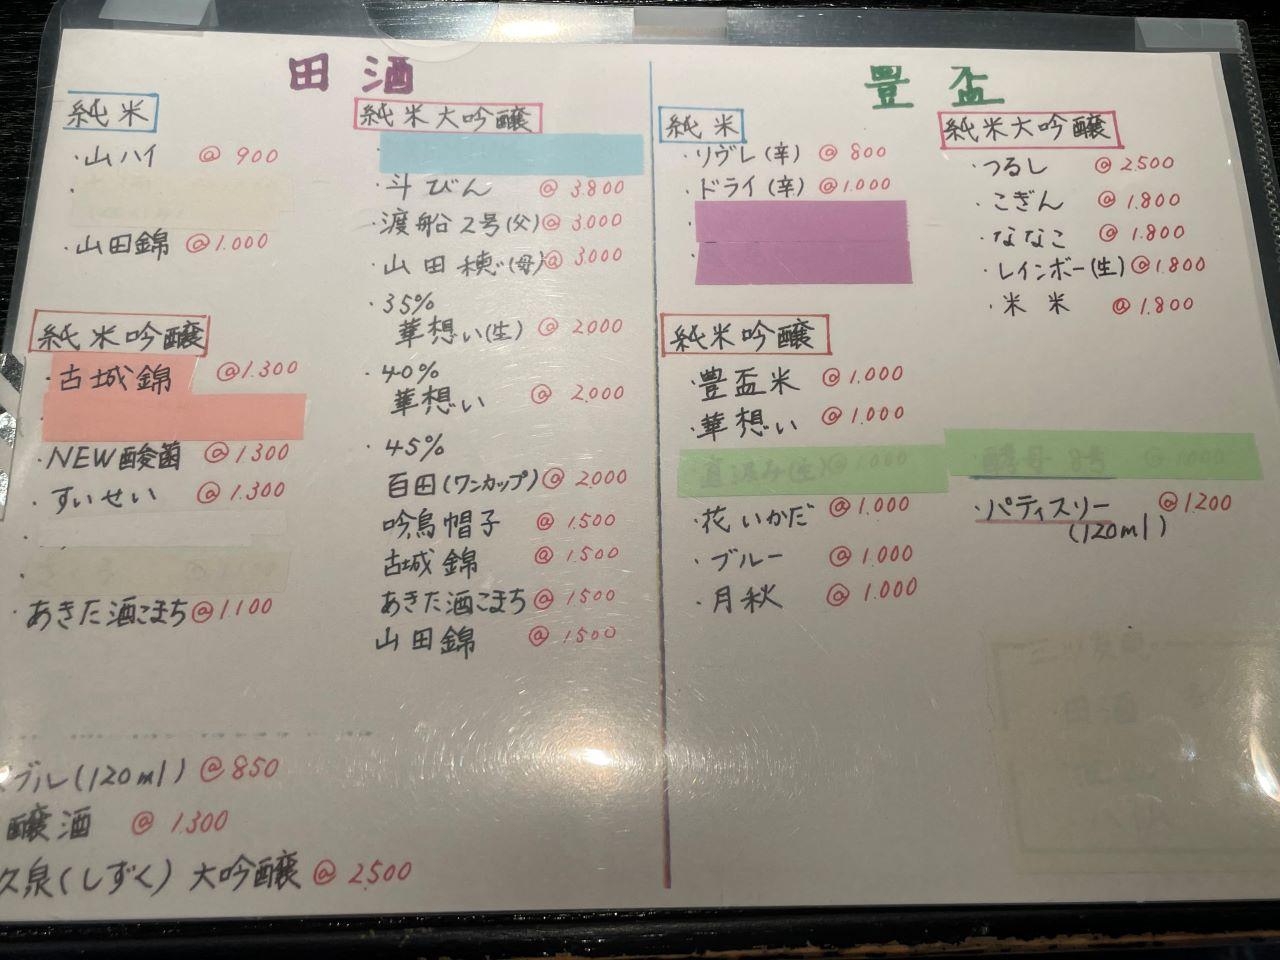 田酒
純米
・山ハイ @900
・山田錦 @1.000
純米吟醸
・古城錦 @1.300
・NEW酸菌 @1.300
・すいせい @1.300
・あきた酒こまち @1.100
ブル(120ml) @850
醸酒 @1.300
久泉(しずく)大吟醸 @2.500
純米大吟醸
・斗びん @3.800
・渡船2号(父) @3.000
・山田穂(母) @3.000
・35%
華想い(生) @2.000
・40%
華想い @2.000
・45%
百田(ワンカップ) @2.000
吟烏帽子 @1.500
古城錦 @1.500
あきた酒こまち @1.500
山田錦 @1.500
豊盃
純米
・リヴレ(辛) @800
・ドライ(辛) @1.000
純米吟醸
・豊盃米 @1.000
・華想い @1.000
直汲み(生) @1.000
・花いかだ @1.000
・ブルー @1.000
・月秋 @1.000
純米大吟醸
・つるし @2.500
・こぎん @1.800
・ななこ @1.800
・レインボー(生) @1.800
・米米 @1.800
・パティスリー @1.200
(120ml)